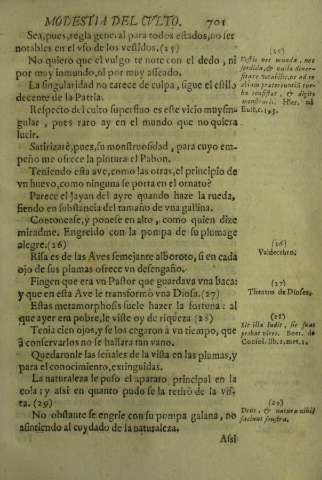 MODESTIA DEL CVLTO. 701
Sea, pues, regla general para todos estados, no ser
notables en el vso de los vestidos. (25)
No quiero que el vulgo te note con el dedo, ni
por muy inmundo, ni por muy asseado.
La singularidad no carece de culpa, sigue el estilo
decente de la Patria.
Respecto del culto superfluo es este vicio muy sin-
gular, pues raro ay en el mundo que no quiera
lucir.
Satirizarè, pues, su monstruosidad, para cuyo em-
peño me ofrece la pintura el Pabon.
Teniendo esta ave, como las otras, el principio de
vn huevo, como ninguna se porta en el ornato?
Parece el Jayan del ayre quando haze la rueda,
siendo en substancia del tamaño de vna gallina.
Contonease, y ponese en alto, como quien dize
miradme. Engreido con la pompa de su plumage
alegre. (26)
Risa es de las Aves semejante alboroto, si en cada
ojo de sus plumas ofrece vn desengaño.
Fingen que era vn Pastor que guardava vna baca:
y que en esta Ave le transformò vna Diosa. (27)
Estas metamorphosis suele hazer la fortuna: al
que ayer era pobre, le viste oy de riqueza (28)
Tenia cien ojos, y se los cegaron à vn tiempo, que
à conservarlos no se hallara tan vano.
Quedaronle las señales de la vista en las plumas, y
para el conocimiento, extinguidas.
La naturaleza le puso el aparato principal en la
cola: y assi en quanto pudo se la retirò de la vis-
ta. (29)
No obstante se engrie con su pompa galana, no
assintiendo al cuydado de la naturaleza.
Assi
(25)
Vestis nec munda, nec
sordida, &
notabilis, ne ad te
turba
&
monstraris. Hier. ad
Eust. c. 13.
(26)
Valdecebro.
(27)
Theatro de Dioses.
(28)
Sic illa ludit, sic suos
probat vires. Boet. de
Consol. lib. 2. met. 1.
(29)
Deus, & natura nihil
faciunt frustra.